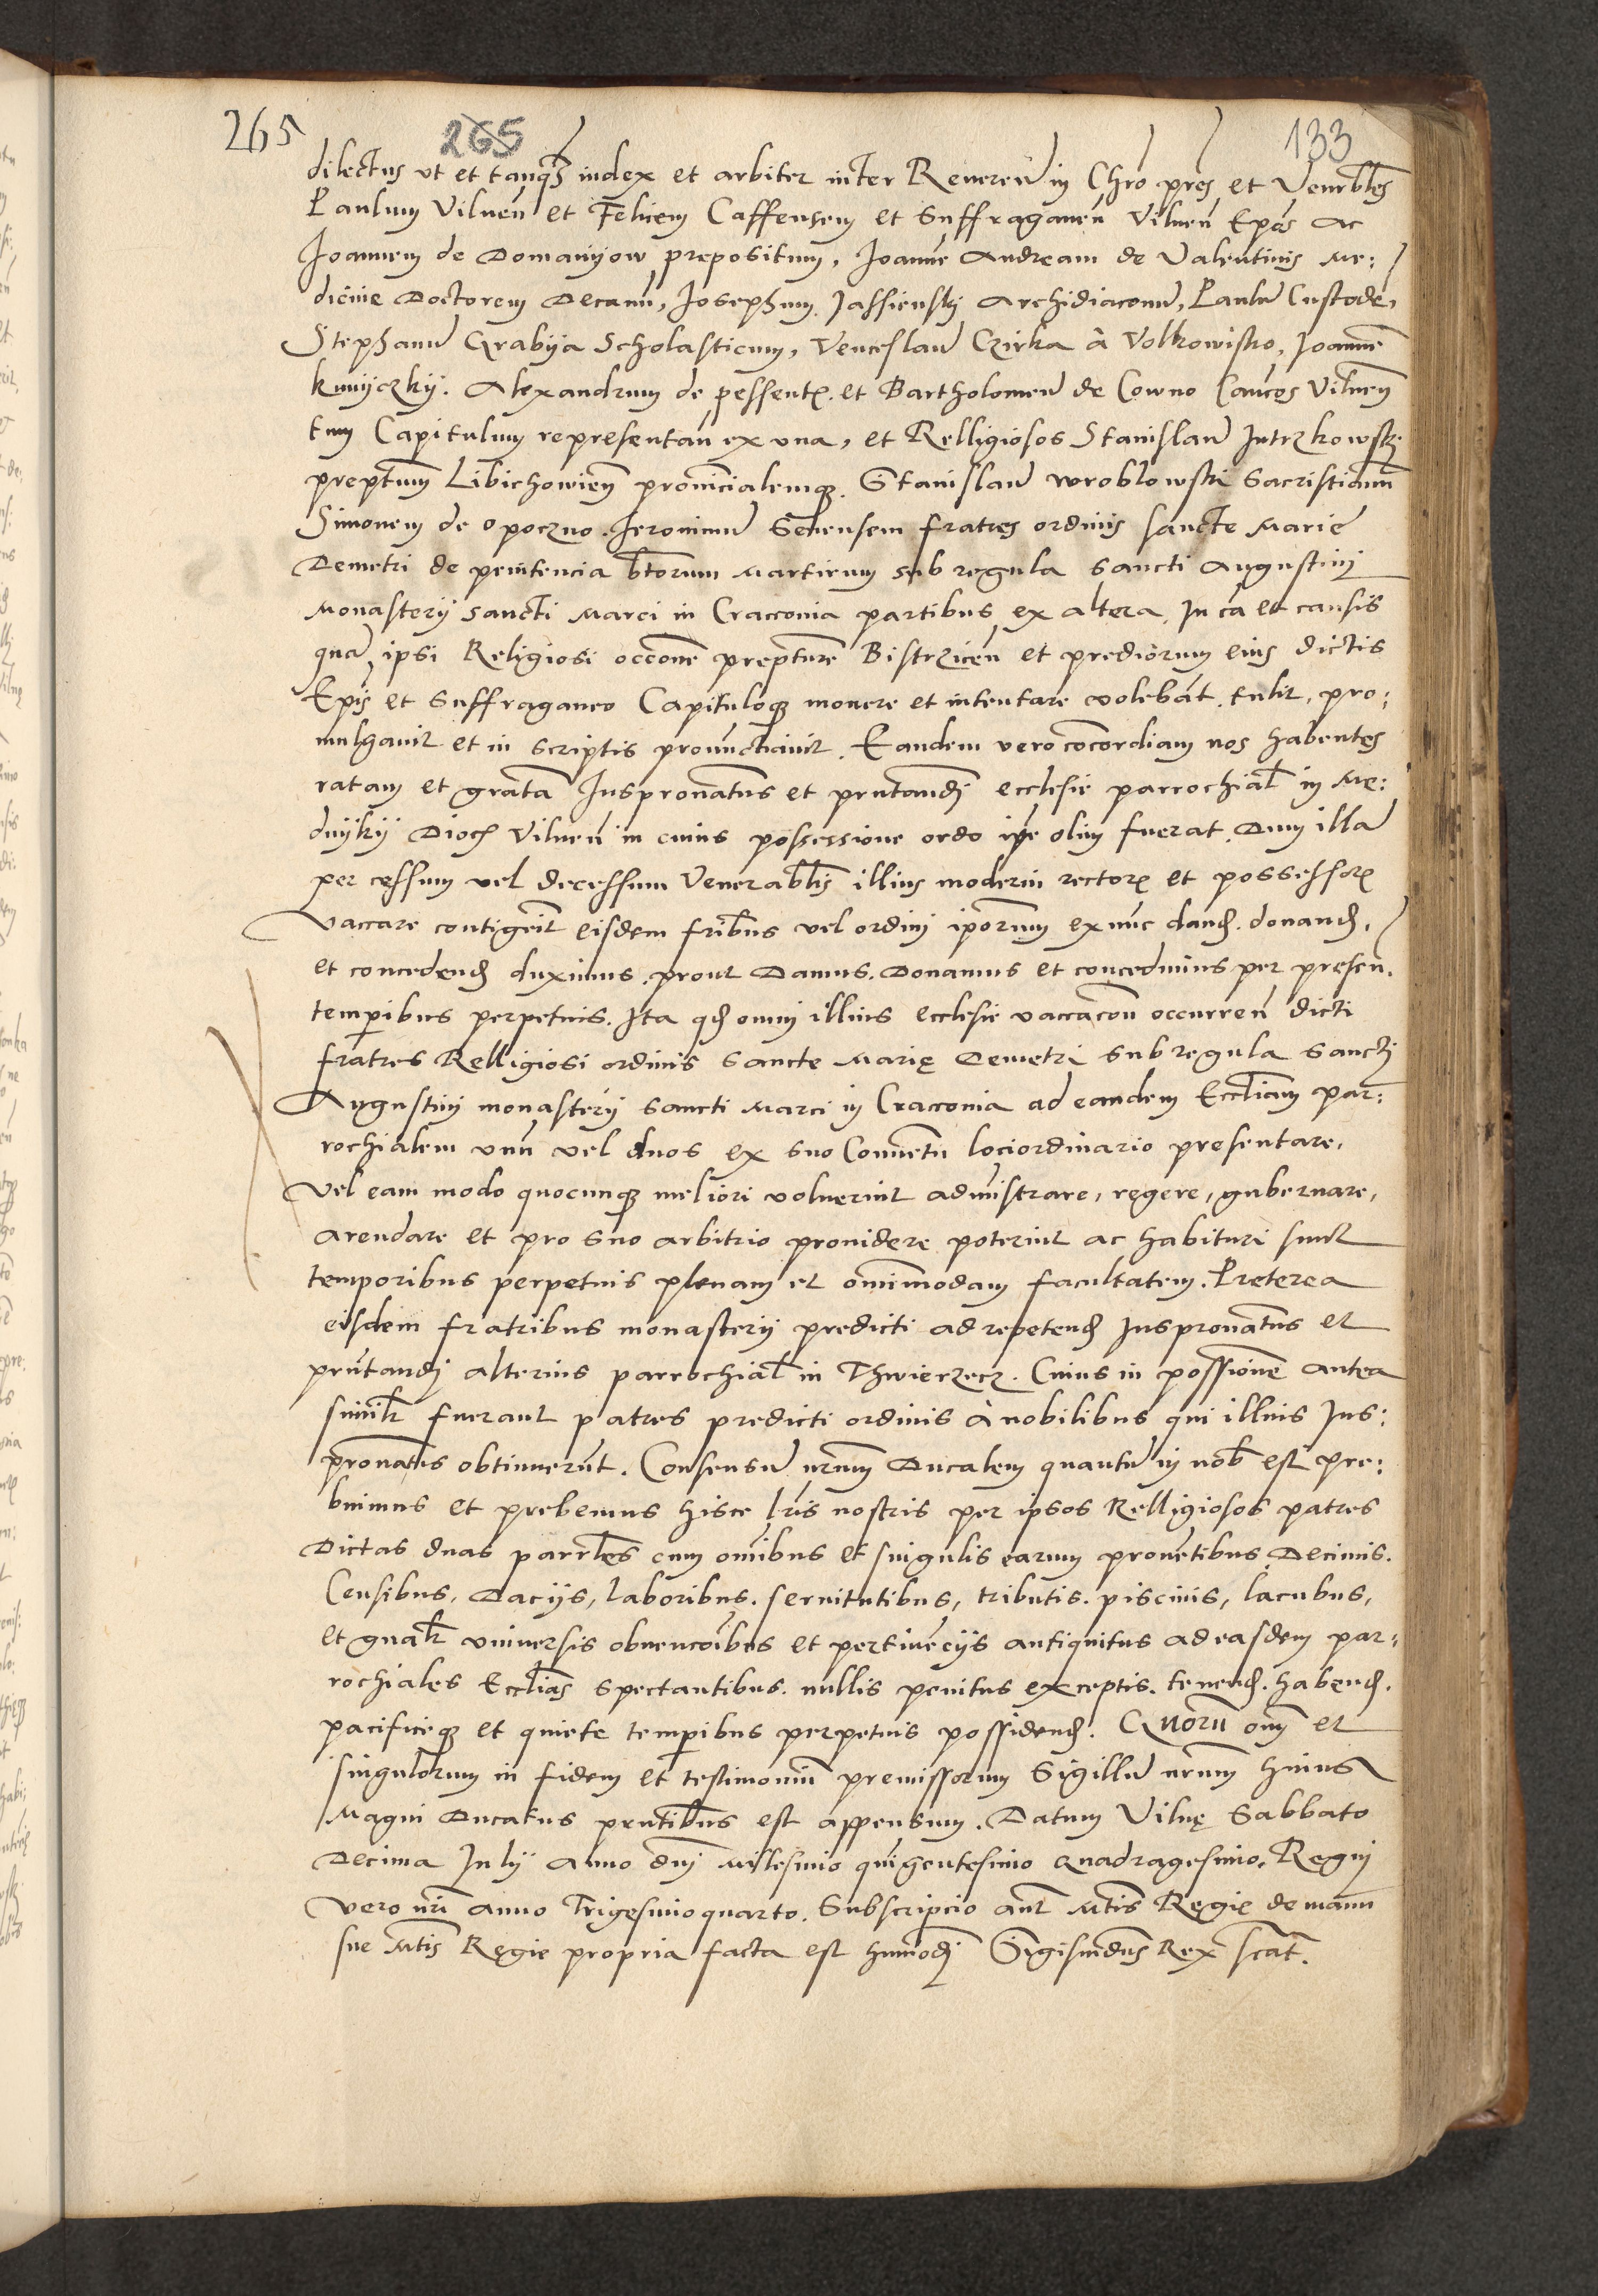 265 265 133
dilectus ut et tanqȝ iudex et arbiter inter Reuereñ in Chro pres et Venerbles
Paulum Vilneñ et Felicem Caffensem et Suffraganeñ Vilneñ Epos Ac
Joannem de Domanijow prepositum, Joanne Andream de Valentinis Me:
dicine Doctorem Decanũ, Josephum Jassienskj Archidiaconũ, Paulũ Custode,
Stephanũ Grabija Scholasticum, Venceslaũ Czirka à Volkowisko, Joanne
kunijczkij. Alexandrum de pessenti et Bartholomeũ de Cowno Canoicos Vilneñ
tum Capitulum representañ ex una, et Relligiosos Stanislaũ Jutrzkowskj
preptum Libichowieñ prouincialemqȝ. Stanislaũ wroblowski Sacristianũ
Simonem de opoczno. Jeronimũ Senensem fratres ordinis sancte Marie
Demetri de penitencia btorum Martirum sub regula sancti Augustini
Monasterij sancti Marci in Cracouia partibus ex altera, In cã et causis
quã ipsi Religiosi occone prepture Bistrzicen et prediorum eius dictis
Epis et Suffraganeo Capituloqȝ mouere et intentare volebãt. tulit, pro:
mulgauit et in scriptis pronuncciauit. Eandem vero cocordiam nos habentes
ratam et gratã Juspronatus et prntandj ecclesie parrochial in Me:
dnijkij Dioch Vilneñ in cuius possessione ordo ipse olim fuerat. Dum illã
per cessum vel decessum Venerablis illius moderni rectoris et possessoris
vaccare contigerit eisdem fribus vel ordini iporum ex nunc dand. donand,
et concedend duximus. prout Damus. Donamus et concedimus per presen.
temporibus perpetuis. Ita qd omni illius ecclesie vaccacõn occurreñ dicti
fratres Relligiosi ordinis Sancte Marię Demetri sub regula Sancti
Augustini monasterij Sancti Marci in Cracouia ad eandem Eccliam par:
rochialem unũ vel duos ex suo Conuetu loci ordinario presentare,
vel eam modo quocunqȝ meliori voluerint administrare, regere, gubernare,
Arendare et pro suo arbitrio prouidere poterint ac habituri sunt
temporibus perpetuis plenam et omnimodam facultatem. Preterea
eisdem fratribus monasterij predicti ad repetend Juspronatus et
prntandj alterius parrochial in Thwierzecz. Cuius in possione antea
similr fuerant patres predicti ordinis à nobilibus qui illius Jus:
pronatus obtinuerũt. Consensũ nrum Ducalem quantũ in nob est pre:
buimus et prebemus hisce lris nostris per ipsos Relligiosos patres
Dictas duas parrles cum omibus et singulis earum prouetibus Decimis.
Censibus, Dacijs, laboribus. seruitutibus, tributis. piscinis, lacubus,
et gnalr uniuersis obuencõibus et pertinecijs antiquitus ad easdem par:
rochiales Ecclias spectantibus. nullis penitus exceptis. tenend. habend.
pacificeqȝ et quiete temporibus perpetuis possidend. Quorũ oim et
singulorum in fidem et testimoniũ premissorum Sigillũ nrum huius
Magni Ducatus prntibus est appensum. Datum Vilnę Sabbato
Decima Julij Anno dnj Millesimo quigentesimo Quadragesimo. Regni
vero nri Anno Trigesimo quarto. Subscripcio aut Mtis Regie de manu
sue Mtis Regie propria facta est huiusmodi Sigismdus Rex scrat.